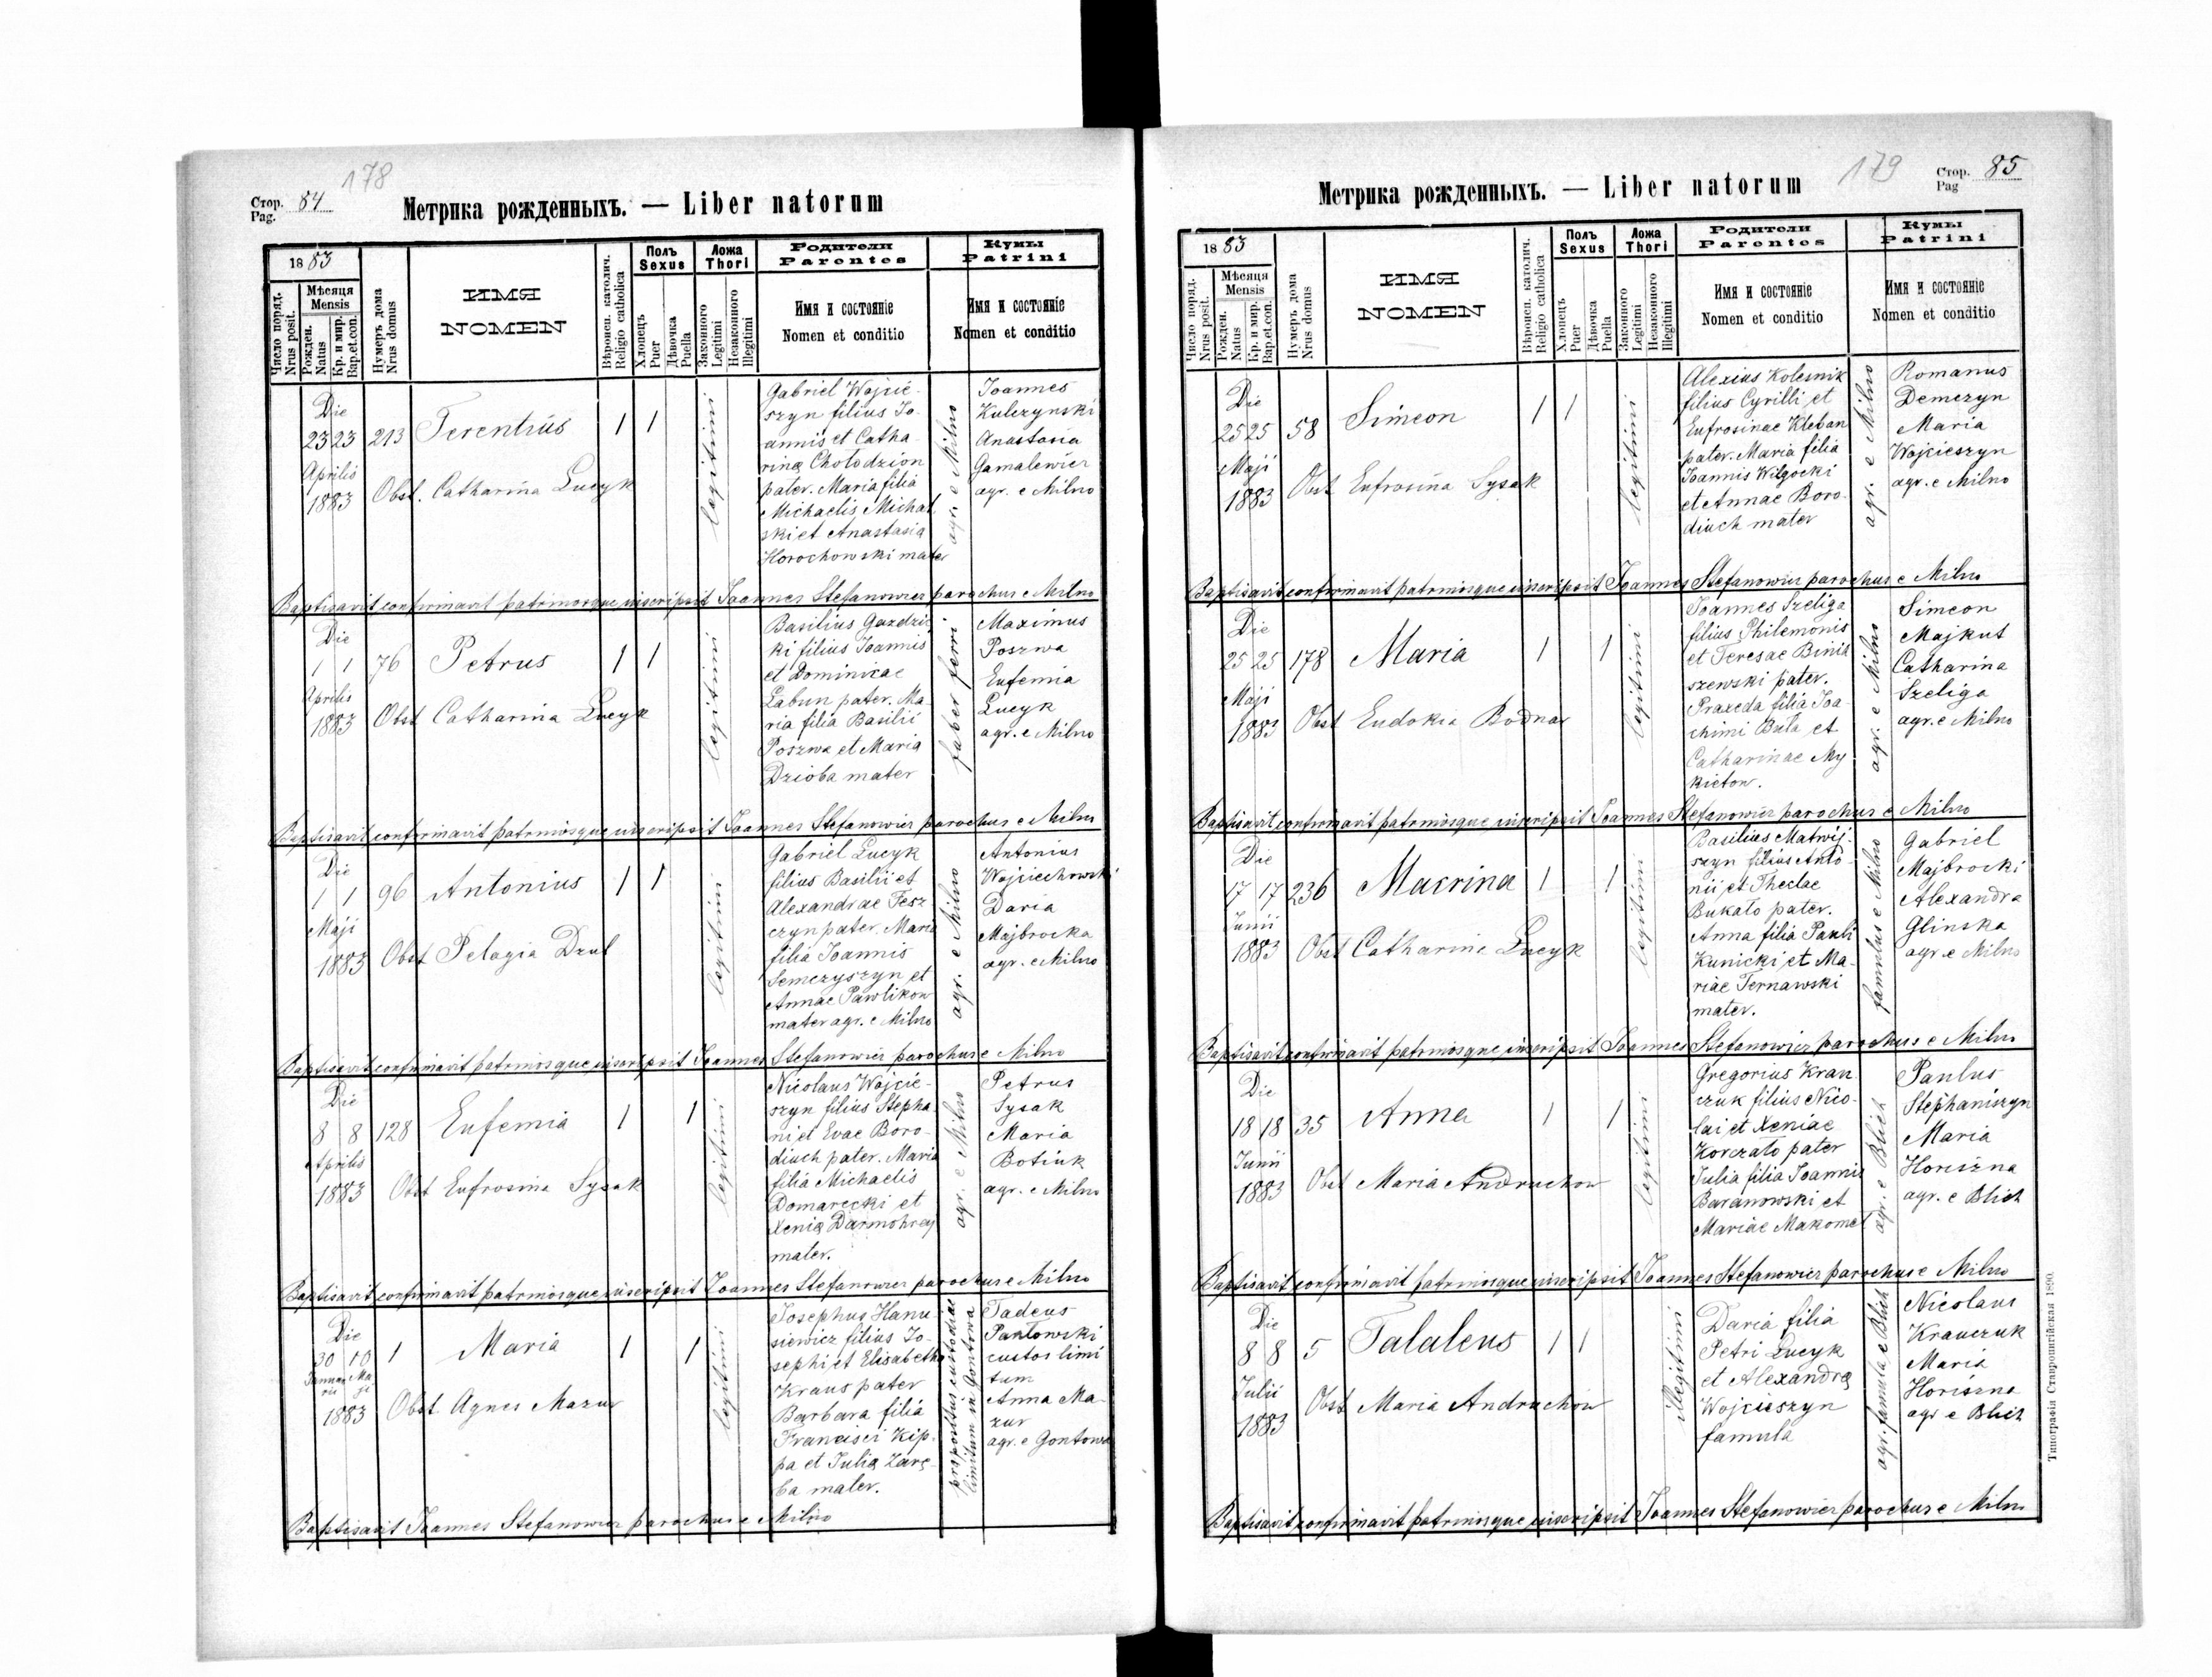 178
Стор. Pag. 84
Метрика рожденныхъ. — Liber natorum
1883
Число поряд. Nrus posit.
Мѣсяця Mensis
Рожден. Natus
Кр. и мир. Bap.et.con.
Нумеръ дома Nrus domus
ИМЯ
NOMEN
Вѣроиcп. католич. Religio catholica
Полъ Sexus
Хлопець Puer
Дѣвочка Puella
Ложа Thori
Законного Legitimi
Незаконного Illegitimi
Родители Parentes
Имя и состояніе
Nomen et conditio
Кумы Patrini
Имя и состояніе
Nomen et conditio
Die
23 23 213 Terentius 1 1
Aprilis
1883 Obst. Catharina Lucyk
legitimi
Gabriel Wojcie-
szyn filius Jo-
annis et Catha-
rinę Chołodzion
pater. Maria filia
Michaelis Michal
ski et Anastasia
Horochowski mater
agr. e Milno
Joannes
Kulczynski
Anastasia
Gamalewicz
agr. e Milno
Baptisavit confirmavit patrinosque inscripsit Joannes Stefanowicz parochus e Milno
Die
1 1 76 Petrus 1 1
Aprilis
1883 Obst Catharina Lucyk
legitimi
Basilius Gazdzic
ki filius Joannis
et Dominicae
Labun pater. Ma-
ria filia Basilii
Poszwa et Maria
Dzioba mater
faber ferri
Maximus
Poszwa
Eufemia
Lucyk
agr. e Milno
Baptisavit confirmavit patrinosque inscripsit Joannes Stefanowicz parochus e Milno
Die
1 1 96 Antonius 1 1
Maji
1883 Obst Pelagia Drul
legitimi
Gabriel Lucyk
filius Basilii et
Alexandrae Tesz
czyn pater. Maria
filia Joannis
Semczyszyn et
Annae Pawlikow
mater agr. e Milno
agr. e Milno
Antonius
Wojciechowski
Daria
Majbrocka
agr. e Milno
Baptisavit confirmavit patrinosque inscripsit Joannes Stefanowicz parochus e Milno
Die
8 8 128 Eufemia 1 1
Aprilis
1883 Obst Eufrosina Sysak
legitimi
Nicolaus Wojcie-
szyn filius Stepha
ni et Evae Boro-
diuch pater. Maria
filia Michaelis
Domarecki et
Xenia Darmohraj
mater.
agr. e Milno
Petrus
Sysak
Maria
Botiuk
agr. e Milno
Baptisavit confirmavit patrinosque inscripsit Joannes Stefanowicz parochus e Milno
Die
30 10 1 Maria 1 1
Januarii Maji
1883 Obst. Agnes Mazur
legitimi
Josephus Hanu
siewicz filius Jo-
sephi et Elisabetha
Kraus pater
Barbara filia
Francisci Kip-
pa et Julia Zarę-
ba mater.
propositus custodiae
limitum in Gontowa
Tadeus
Pantowski
custos limi
tum
Anna Ma-
zur
agr. e Gontowa
Baptisavit Joannes Stefanowicz parochus e Milno
179
Стор. Pag 85
Метрика рожденныхъ. — Liber natorum
1883
Число поряд. Nrus posit.
Мѣсяця Mensis
Рожден. Natus
Кр. и мир. Bap.et.con.
Нумеръ дома Nrus domus
ИМЯ
NOMEN
Вѣроиcп. католич. Religio catholica
Полъ Sexus
Хлопець Puer
Дѣвочка Puella
Ложа Thori
Законного Legitimi
Незаконного Illegitimi
Родители Parentes
Имя и состояніе
Nomen et conditio
Кумы Patrini
Имя и состояніе
Nomen et conditio
Die
25 25 58 Simeon 1 1
Maji
1883 Obst Eufrosina Sysak
legitimi
Alexius Kolesnik
filius Cyrilli et
Eufrosinae Kleban
pater. Maria filia
Joannis Wilgocki
et Annae Boro-
diuch mater
agr. e Milno
Romanus
Demczyn
Maria
Wojcieszyn
agr. e Milno
Baptisavit confirmavit patrinosque inscripsit Joannes Stefanowicz parochus e Milno
Die
25 25 178 Maria 1 1
Maji
1883 Obst Eudokia Bodnar
legitimi
Joannes Szeliga
filius Philemonis
et Teresae Binia
szewski pater.
Praxeda filia Joa-
chimi Buła et
Catharinae My
kietow.
agr. e Milno
Simeon
Majkut
Catharina
Szeliga
agr. e Milno
Baptisavit confirmavit patrinosque inscripsit Joannes Stefanowicz parochus e Milno
Die
17 17 236 Macrina 1 1
Junii
1883 Obst Catharina Lucyk
legitimi
Basilius Matwij-
szyn filius Anto-
nii et Theclae
Bukato pater.
Anna filia Pauli
Kunicki et Ma-
riae Ternawski
mater.
famulus e Milno
Gabriel
Majbrocki
Alexandra
Glinska
agr. e Milno
Baptisavit confirmavit patrinosque inscripsit Joannes Stefanowicz parochus e Milno
Die
18 18 35 Anna 1 1
Junii
1883 Obst Maria Andruchow
legitimi
Gregorius Krau
czuk filius Nico-
lai et Xeniae
Korczato pater
Julia filia Joannis
Baranowski et
Mariae Makomet
agr. e Blich
Paulus
Stephaniszyn
Maria
Horiszna
agr. e Blich
Baptisavit confirmavit patrinosque inscripsit Joannes Stefanowicz parochus e Milno
Die
8 8 5 Talaleus 1 1
Julii
1883 Obst Maria Andruchow
illegitimi
Daria filia
Petri Lucyk
et Alexandra
Wojcieszyn
famula
agr. famula e Blich
Nicolaus
Krauczuk
Maria
Horiszna
agr e Blich
Baptisavit confirmavit patrinosque inscripsit Joannes Stefanowicz parochus e Milno
Типографія Ставропигійская 1890.